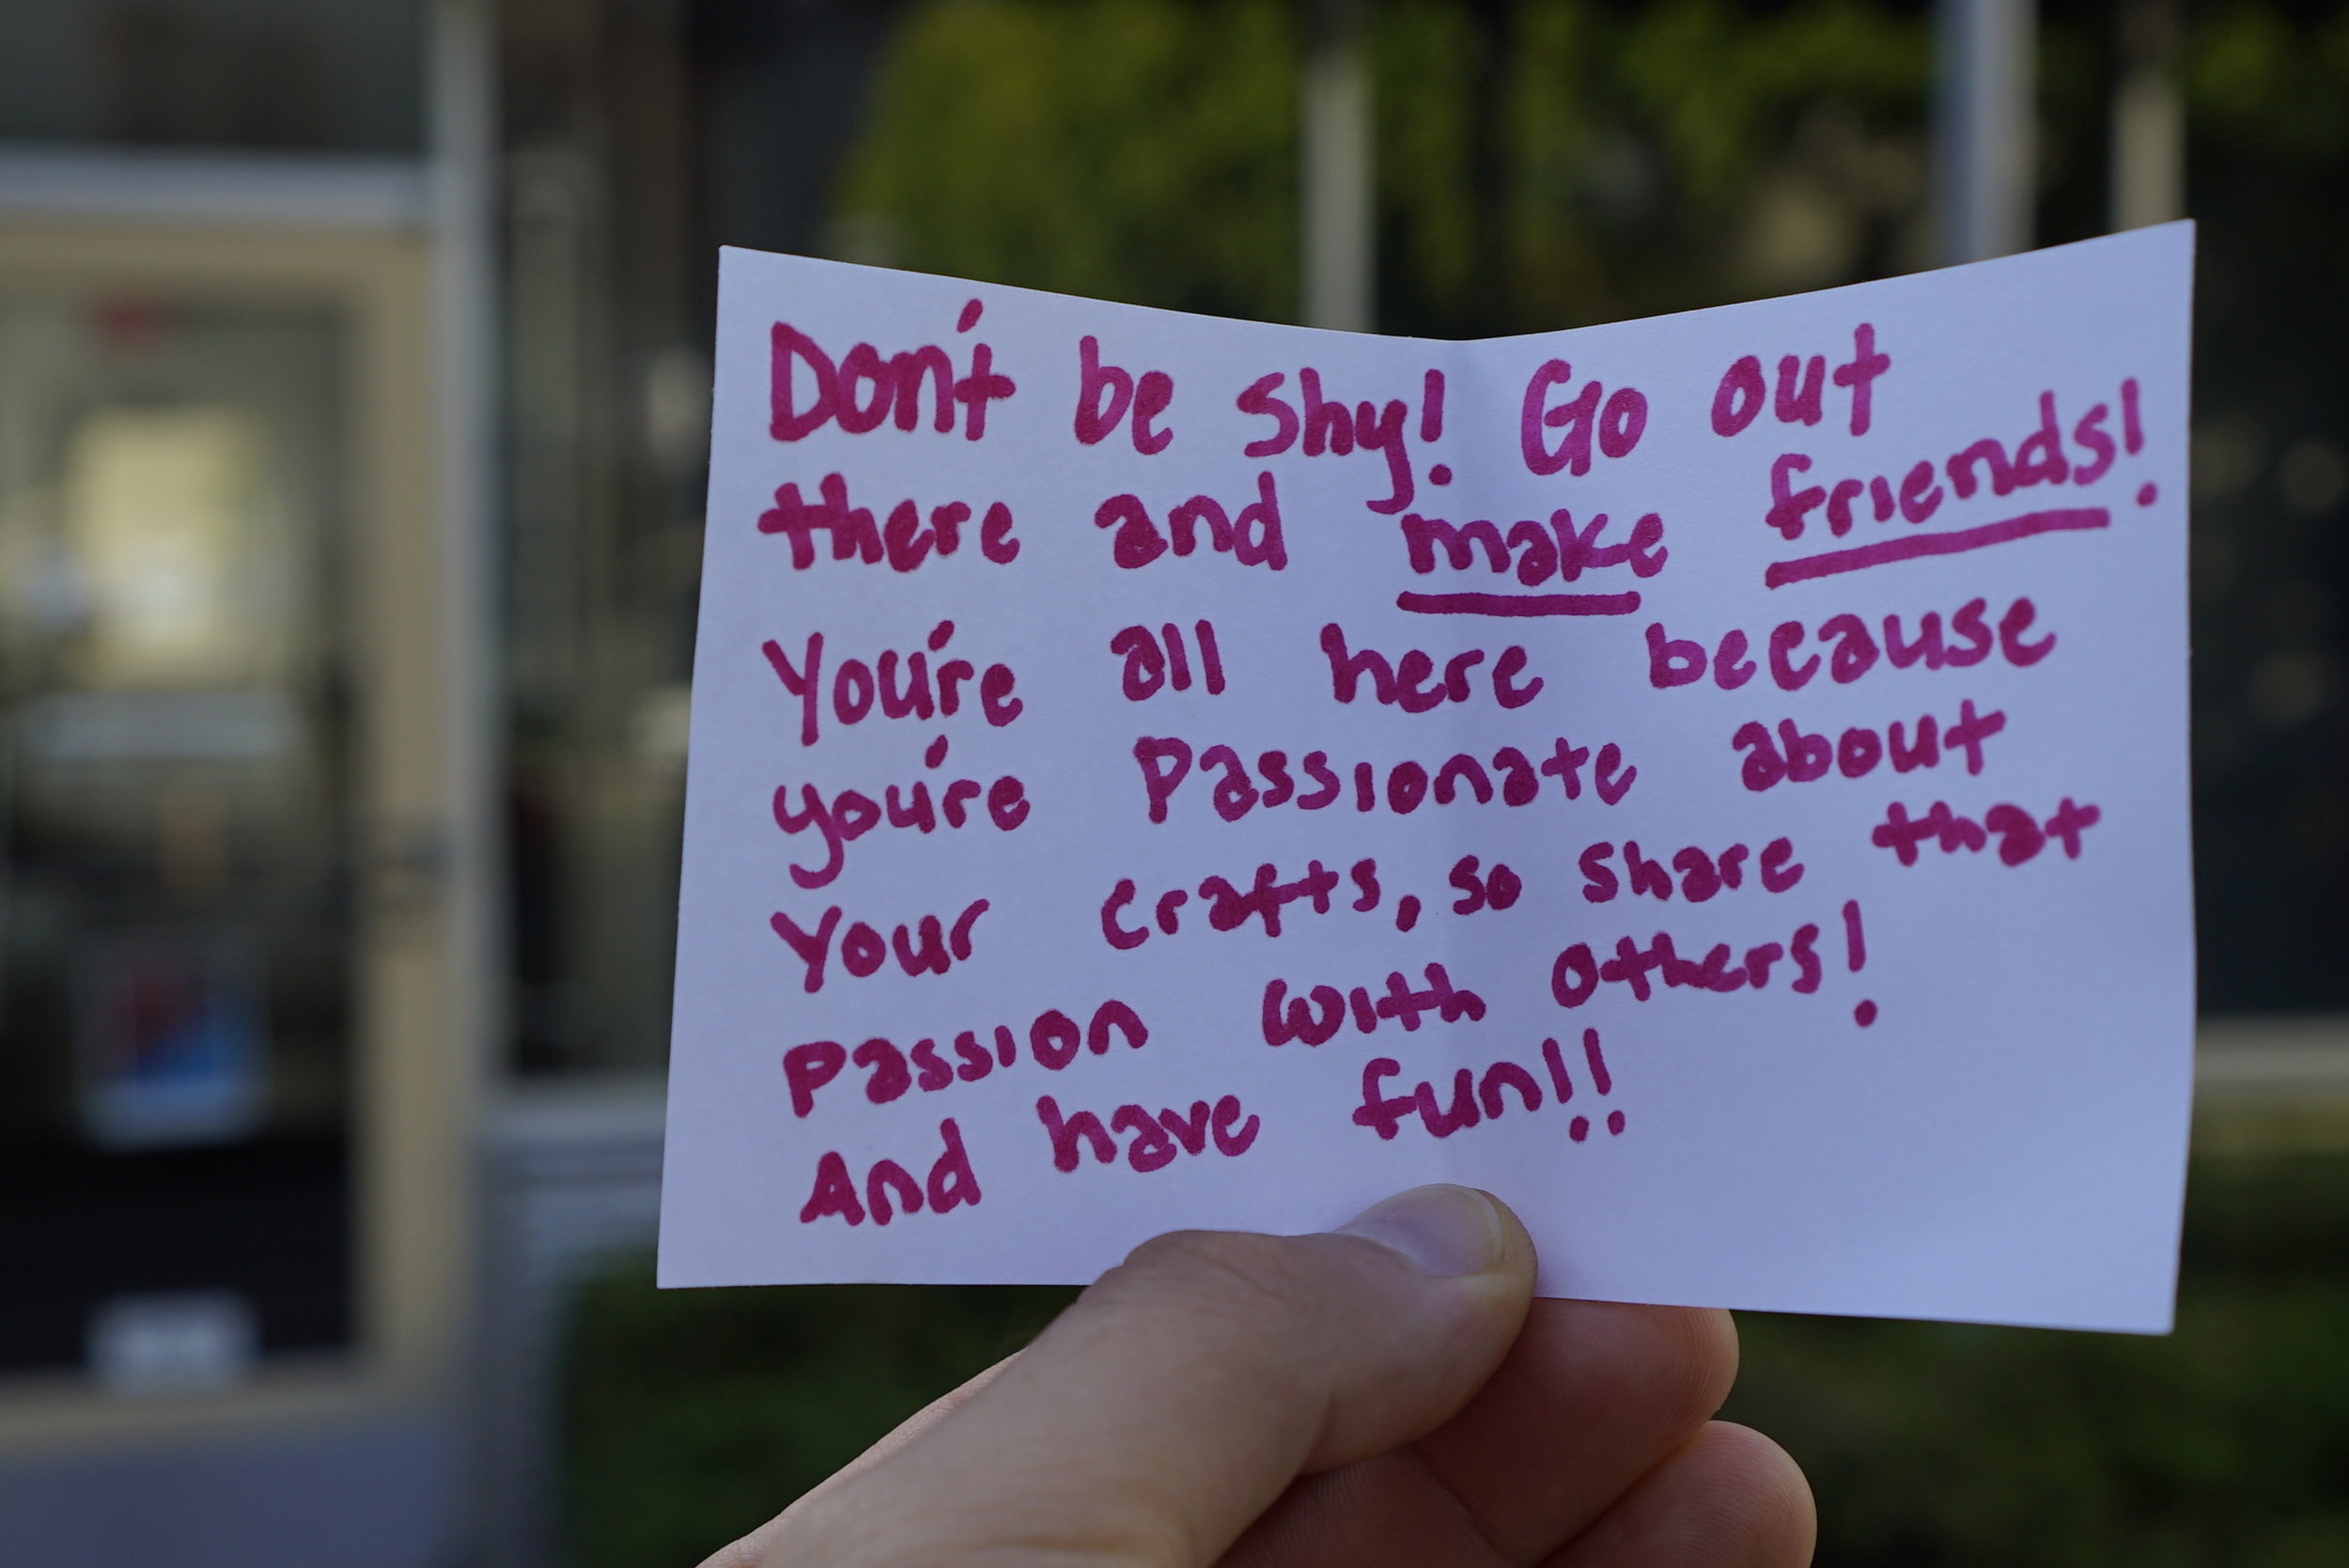 Don't be shy! Go out
there and make friends!
You're all here because
you're passionate about
Your crafts, so share that
passion with others!
And have fun!!